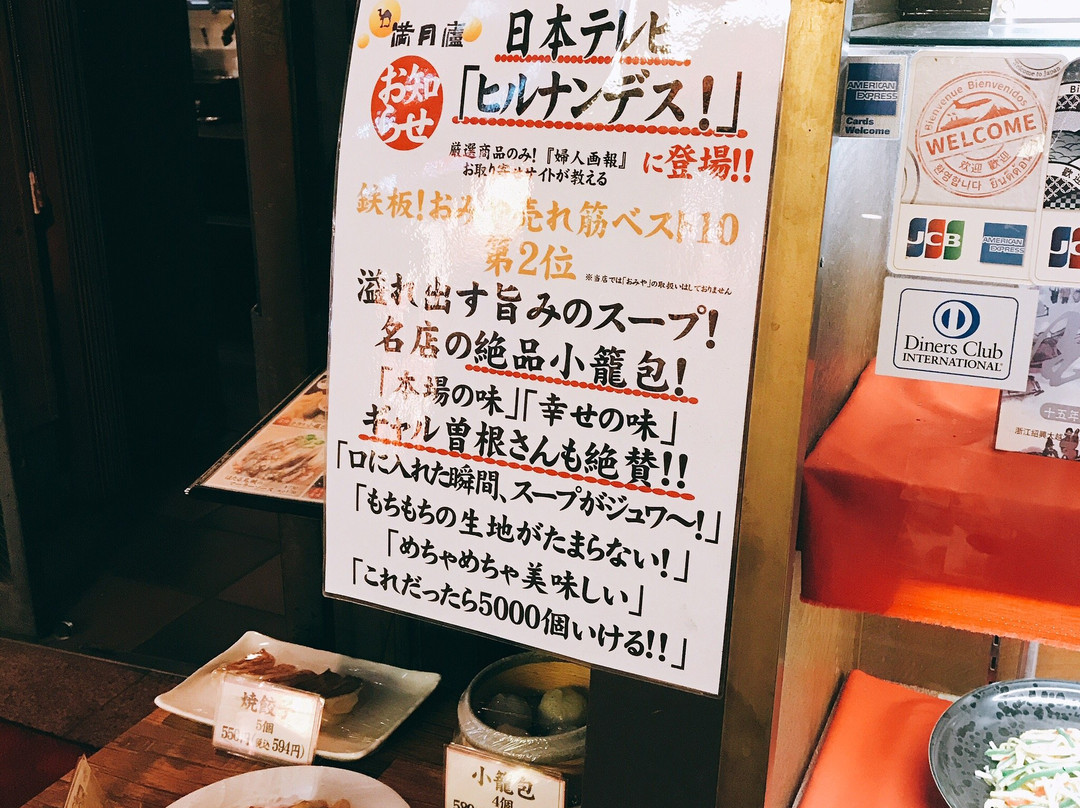 満月廬
お知らせ
日本テレビ
「ヒルナンデス！」
厳選商品のみ！『婦人画報』
お取り寄せサイトが教える
に登場!!
鉄板！おみや売れ筋ベスト10
第2位
※当店では「おみや」の取扱いはしておりません
溢れ出す旨みのスープ！
名店の絶品小籠包！
「本場の味」「幸せの味」
ギャル曽根さんも絶賛!!
「口に入れた瞬間、スープがジュワ〜！」
「もちもちの生地がたまらない！」
「めちゃめちゃ美味しい」
「これだったら5000個いける!!」
焼餃子
5個
550円(税込594円)
小籠包
4個
AMERICAN
EXPRESS
Cards
Welcome
Welcome to Japan
Bienvenue Bienvenidos
WELCOME
欢迎 歡迎
환영합니다 ยินดีต้อนรับ
JCB
AMERICAN
EXPRESS
Diners Club
INTERNATIONAL
十五年